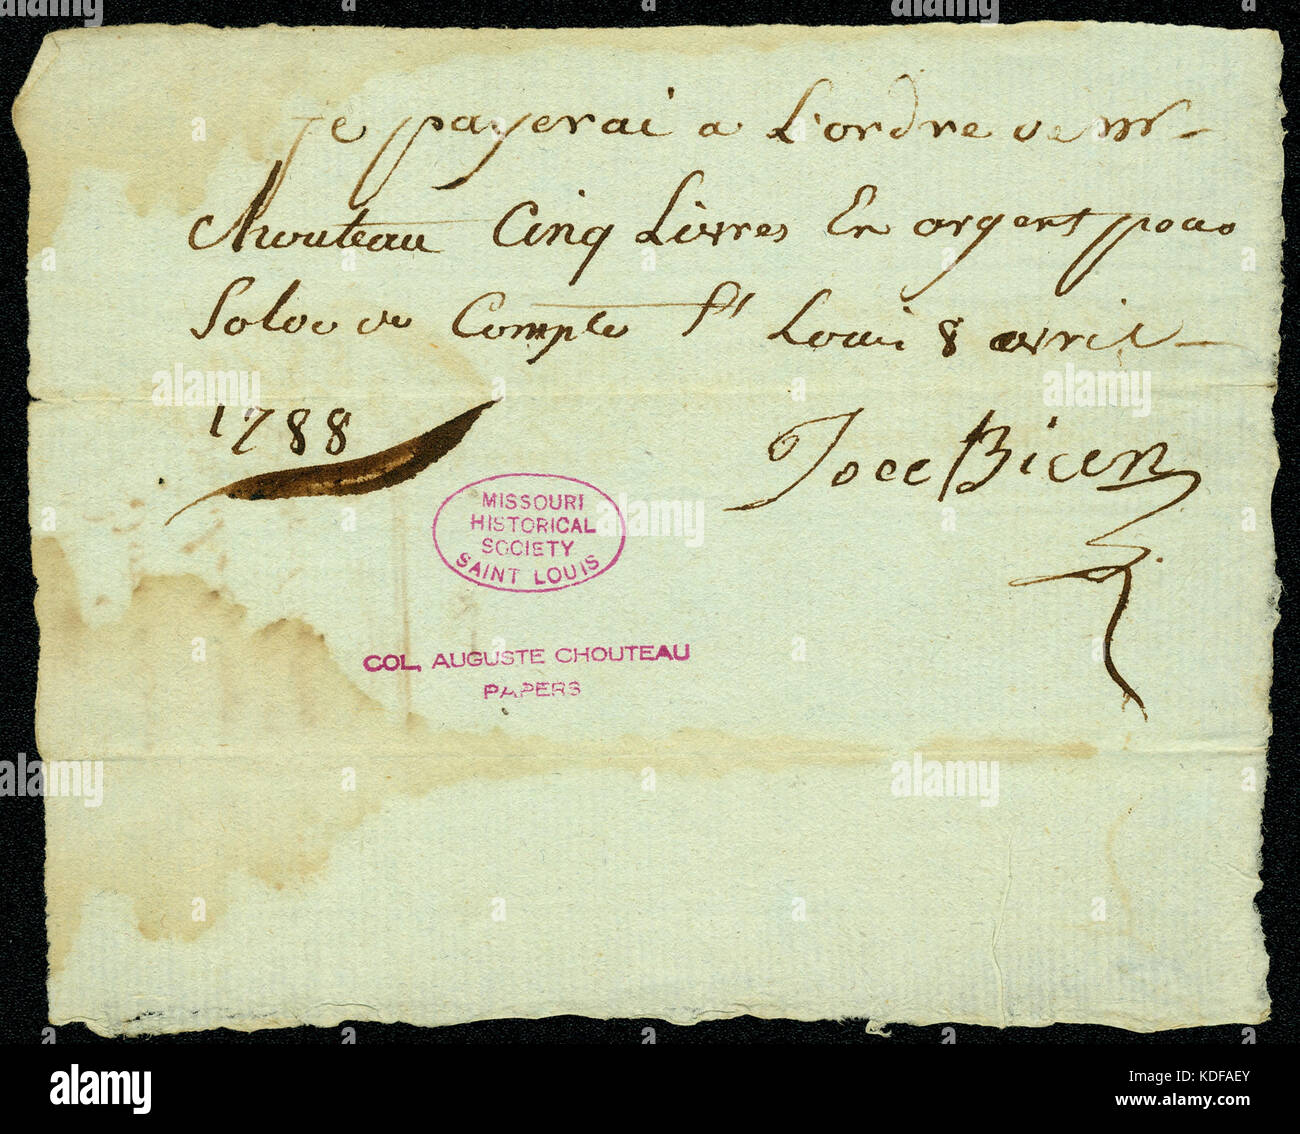 Je payerai a L'ordre de Mr
Chouteau Cinq Livres En argent pour
Solde de Compte St Louis 8 avril
1788
Joee Bicen
MISSOURI
HISTORICAL
SOCIETY
SAINT LOUIS
COL. AUGUSTE CHOUTEAU
PAPERS
alamy
Image ID: KDFAEY
www.alamy.com